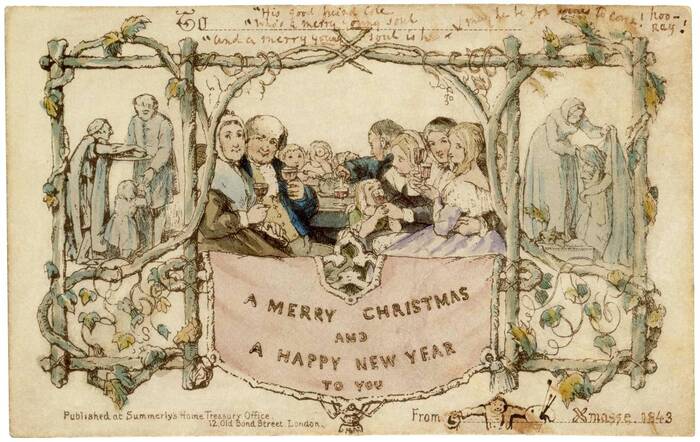 To
"His good friend Cole
"Who's a merry young soul
"and a merry young soul is he"
may he be for years to come! hoo-
ray!
A MERRY CHRISTMAS
AND
A HAPPY NEW YEAR
TO YOU
Published at Summerly's Home Treasury Office,
12, Old Bond Street London.
From
Xmasse, 1843